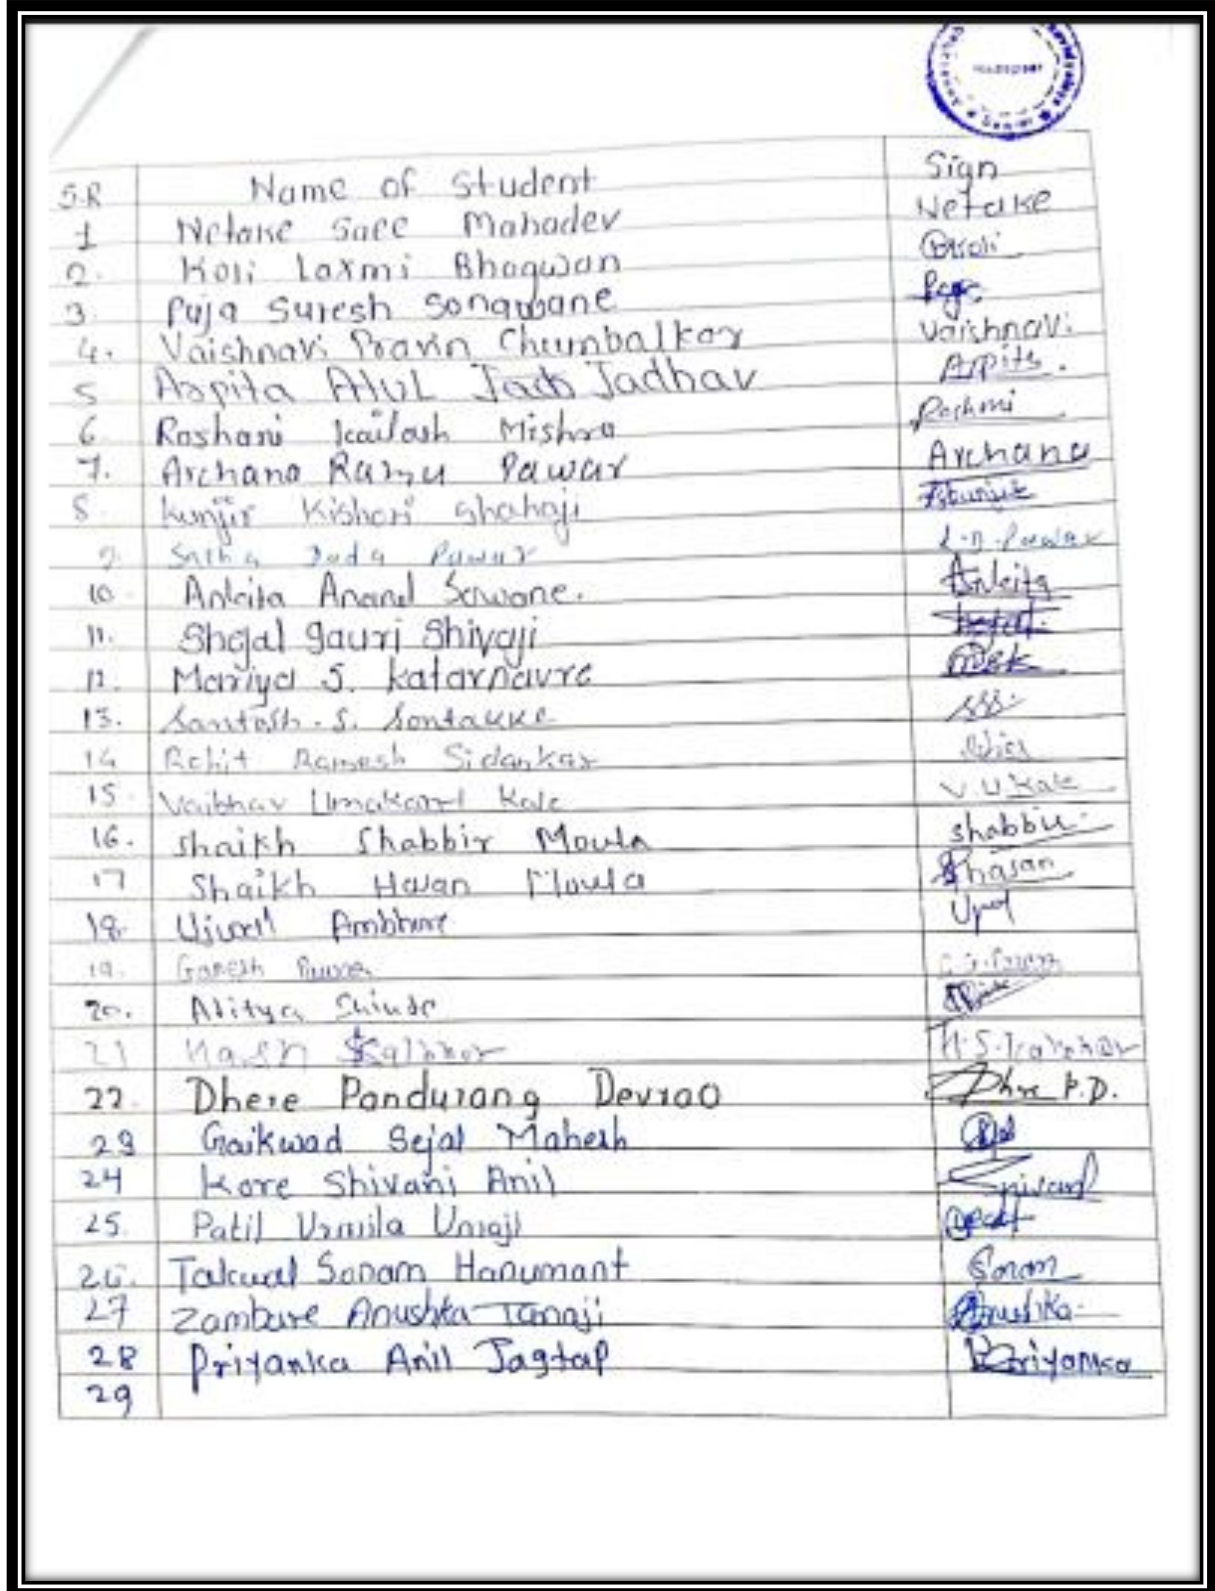 S.R Name of Student Sign
1 Netake Saee Mahadev Netake
2. Koli Laxmi Bhagwan Koli
3. Puja Suresh Sonawane
4. Vaishnavi Pravin Chumbalkar Vaishnavi
5 Arpita Atul Jadhav Arpita.
6 Roshani Kailash Mishra Roshmi
7. Archana Ramu Pawar Archana
8. Kunjir Kishori Shahaji
9. Dada Pawar Pawar
10 Ankita Anand Sawane. Ankita
11. Shejal Gauri Shivaji
12. Mariya S. Katarnavre MSK
13. Santosh. S. Sontakke SSS
14 Rohit Ramesh Sidankar
15 Vaibhav Umakant Kale V.U Kale
16. Shaikh Shabbir Moula Shabbir
17 Shaikh Hasan Moula Shasan
18. Ujwal Ambhore
19. Ganesh Pawar
20. Aditya Shinde
21 Kalbhor
22. Dhere Pandurang Devrao Dhre P.D.
23 Gaikwad Sejal Mahesh
24 Kore Shivani Anil Shivani
25. Patil Urmila Umaji
26. Takwal Sonam Hanumant Sonam
27 Zambare Anushka Tanaji Anushka
28 Priyanka Anil Jagtap Priyanka
29